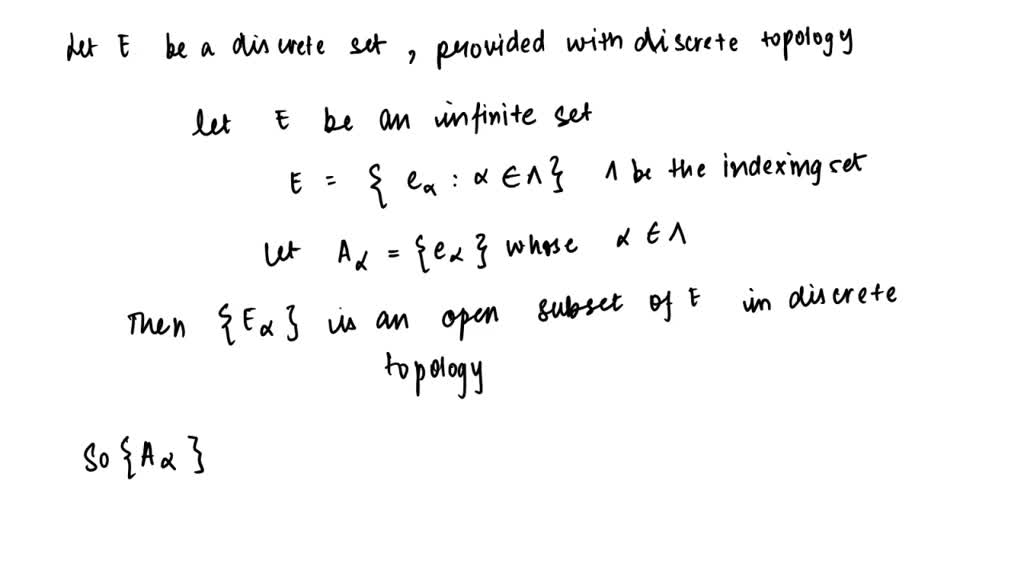 Let E be a discrete set, provided with discrete topology
let E be an infinite set
E = { e_α : α ∈ Λ } Λ be the indexing set
Let A_α = {e_α} whose α ∈ Λ
Then {E_α} is an open subset of E in discrete
topology
So {A_α}